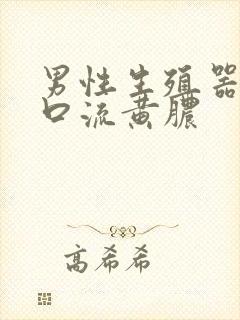 男性生殖器
口流黄脓
高希希